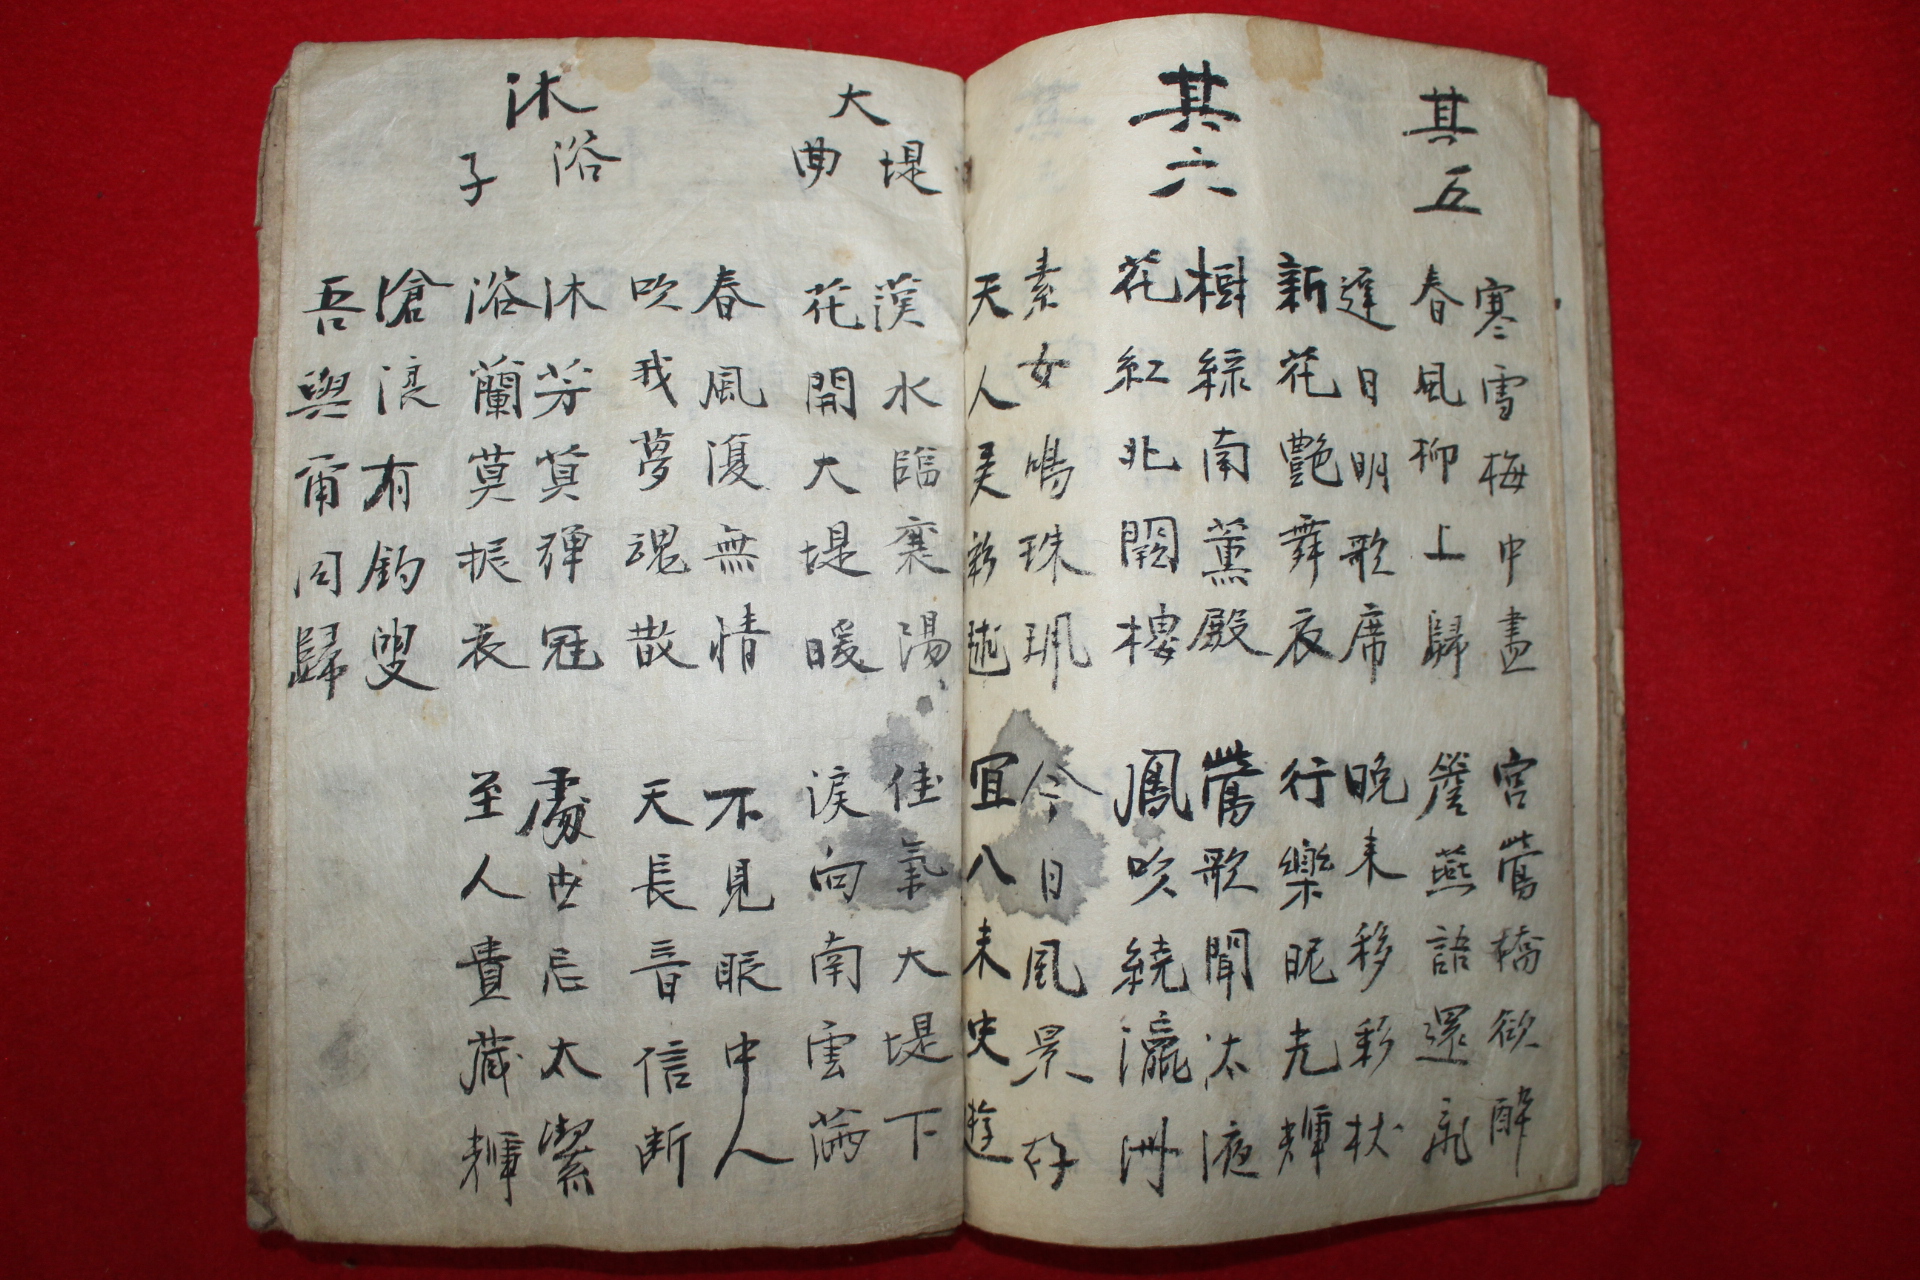 其五
寒雪梅中盡
春風柳上歸
宮鶯橋欲醉
簷燕語還飛
遲日明歌席
新花艷舞衣
晩来移彩杖
行樂昵光輝
其六
樹綠南薰殿
花紅北闕樓
鶯歌聞太液
鳳吹繞瀛洲
素女鳴珠珮
天人弄彩毬
今日風景好
宜八未央遊
大堤曲
漢水臨襄陽
花開大堤暖
佳氣大堤下
淚向南雲滿
春風復無情
吹我夢魂散
不見眼中人
天長音信断
沐浴子
沐芳莫彈冠
浴蘭莫振衣
處世忌太潔
至人貴藏輝
滄浪有釣叟
吾與爾同歸